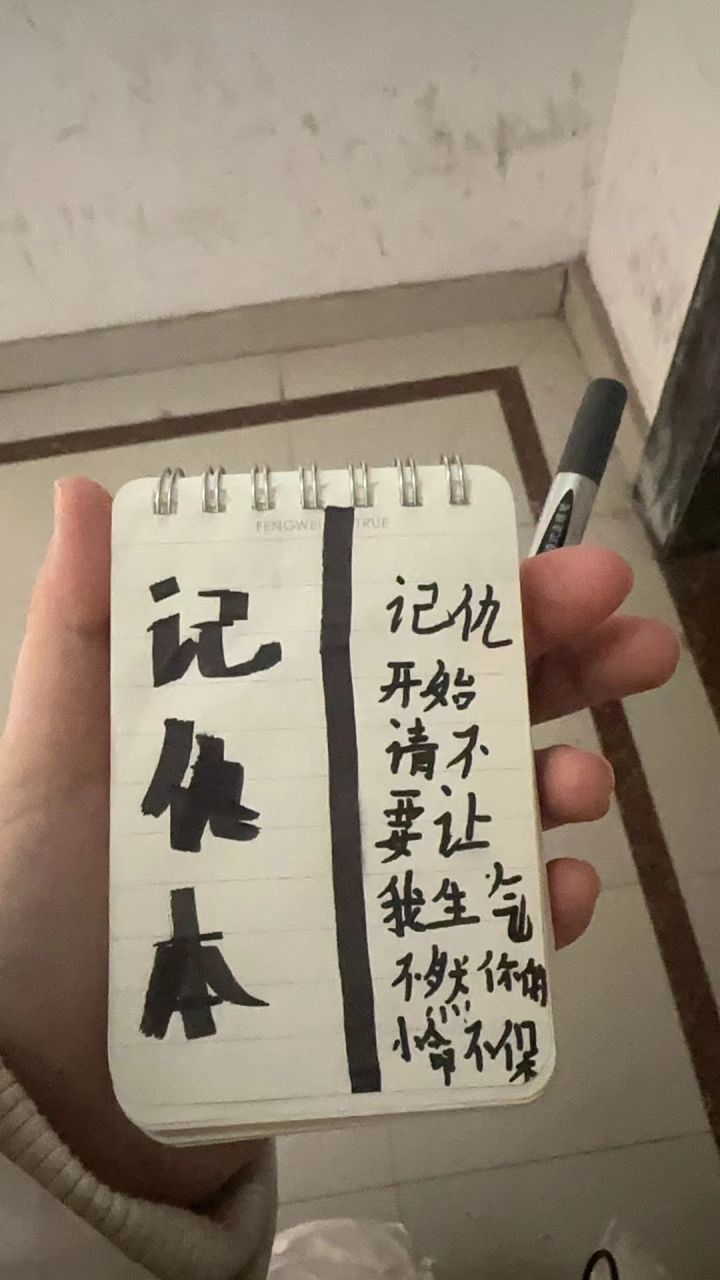 FENGWEI TRUE
记
仇
本
记仇
开始
请不
要让
我生气
不然你的
小命不保